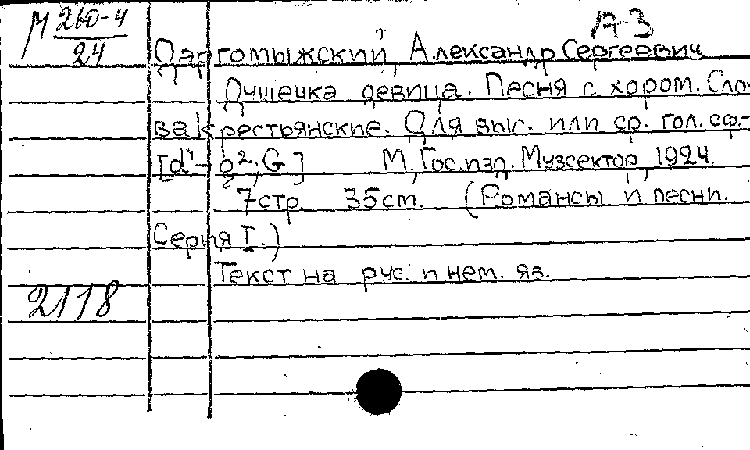 М 260-4
24
А-3
Даргомыжский, Александр Сергеевич
Душечка девица. Песня с хором. Сло-
ва крестьянские. Для выс. или ср. гол. с ф.
[d¹–b²; G] М, Гос. изд. Музсектор, 1924.
7стр 35ст. (Романсы и песни.
Серия I.)
Текст на рус. и нем. яз.
2118